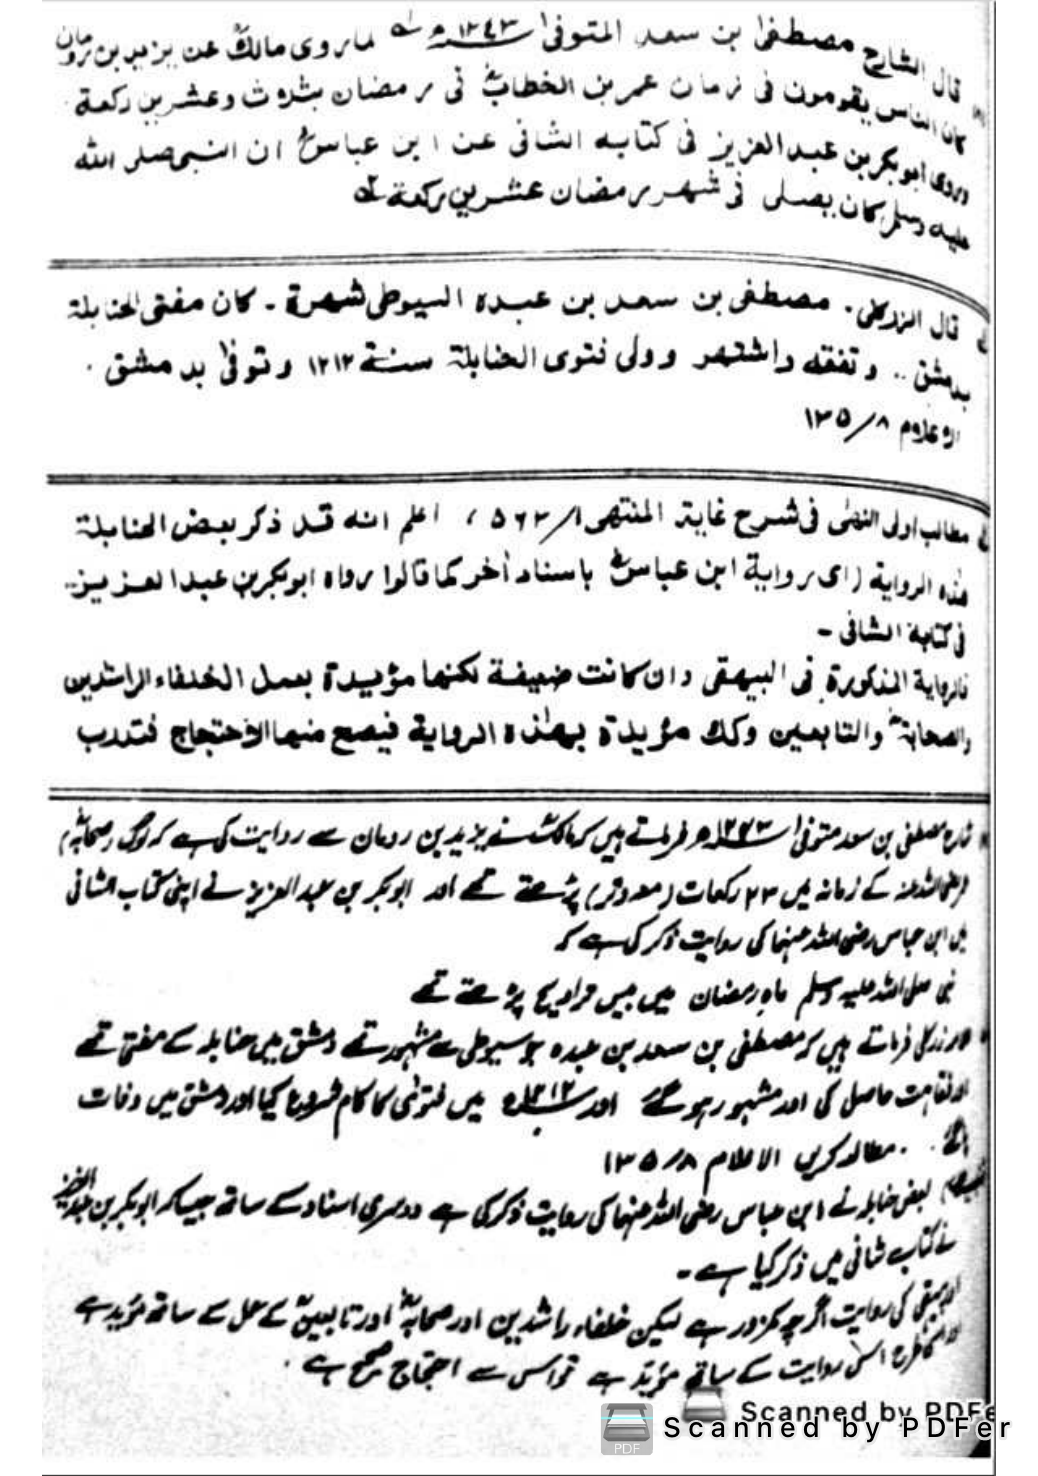 قال الشارح مصطفیٰ بن سعد المتوفیٰ ١٢٤٣ھ لما روی مالکؒ عن یزید بن رومان
کان الناس یقومون فی زمان عمر بن الخطابؓ فی رمضان بثلاث وعشرین رکعة
وروی ابوبکر بن عبد العزیز فی کتابه الشافی عن ابن عباسؓ ان النبی صلی الله
علیه وسلم کان یصلی فی شهر رمضان عشرین رکعة
قال الزرکلی. مصطفی بن سعد بن عبده السیوطی شهرة ـ کان مفتی الحنابلة
بدمشق .. وتفقه واشتهر وولی فتوی الحنابلة سنة ١٢١٢ وتوفیٰ بدمشق .
الاعلام ٨/١٣٥
مطالب اولی النهی فی شرح غایة المنتهی ١/٥٦٣، اعلم انه قد ذکر بعض الحنابلة
هذه الروایة (ای روایة ابن عباسؓ باسناد أخر کما قالوا رواه ابوبکر بن عبد العزیز..
فی کتابة الشافی ـ
فالروایة المذکورة فی البیهقی وان کانت ضعیفة لکنها مؤیدة بعمل الخلفاء الراشدین
والصحابةؓ والتابعین وکک مؤیدة بهٰذه الروایة فیصح منها الاحتجاج فتدرب
شارح مصطفی بن سعد متوفیٰ ١٢٤٣ھ فرماتے ہیں کہ مالکؒ نے یزید بن رومان سے روایت کی ہے کہ لوگ (صحابہؓ)
عمر رضی اللہ عنہ کے زمانہ میں ۲۳ رکعات (مع وتر) پڑھتے تھے اور ابوبکر بن عبد العزیز نے اپنی کتاب الشافی
میں ابن عباس رضی اللہ عنہما کی روایت ذکر کی ہے کہ
نبی صلی اللہ علیہ وسلم ماہِ رمضان میں بیس تراویح پڑھتے تھے
علامہ زرکلی فرماتے ہیں کہ مصطفی بن سعد بن عبدہ جو سیوطی سے مشہور تھے دمشق میں حنابلہ کے مفتی تھے
اور فقاہت حاصل کی اور مشہور ہو گئے اور ١٢١٢ھ میں فتویٰ کا کام شروع کیا اور دمشق میں وفات
پائی . . مطالعہ کریں الاعلام ٨/١٣٥
بعض حنابلہ نے ابن عباس رضی اللہ عنہما کی روایت ذکر کی ہے دوسری اسناد کے ساتھ جیسا کہ ابوبکر بن عبد العزیز
نے کتاب شافی میں ذکر کیا ہے ـ
اور بیہقی کی روایت اگرچہ کمزور ہے لیکن خلفاء راشدین اور صحابہؓ اور تابعینؒ کے عمل سے ساتھ مؤید ہے
طرح اسی روایت کے ساتھ مؤید ہے تو اس سے احتجاج صحیح ہے .
Scanned by PDFer
Scanned by PDFer
PDF